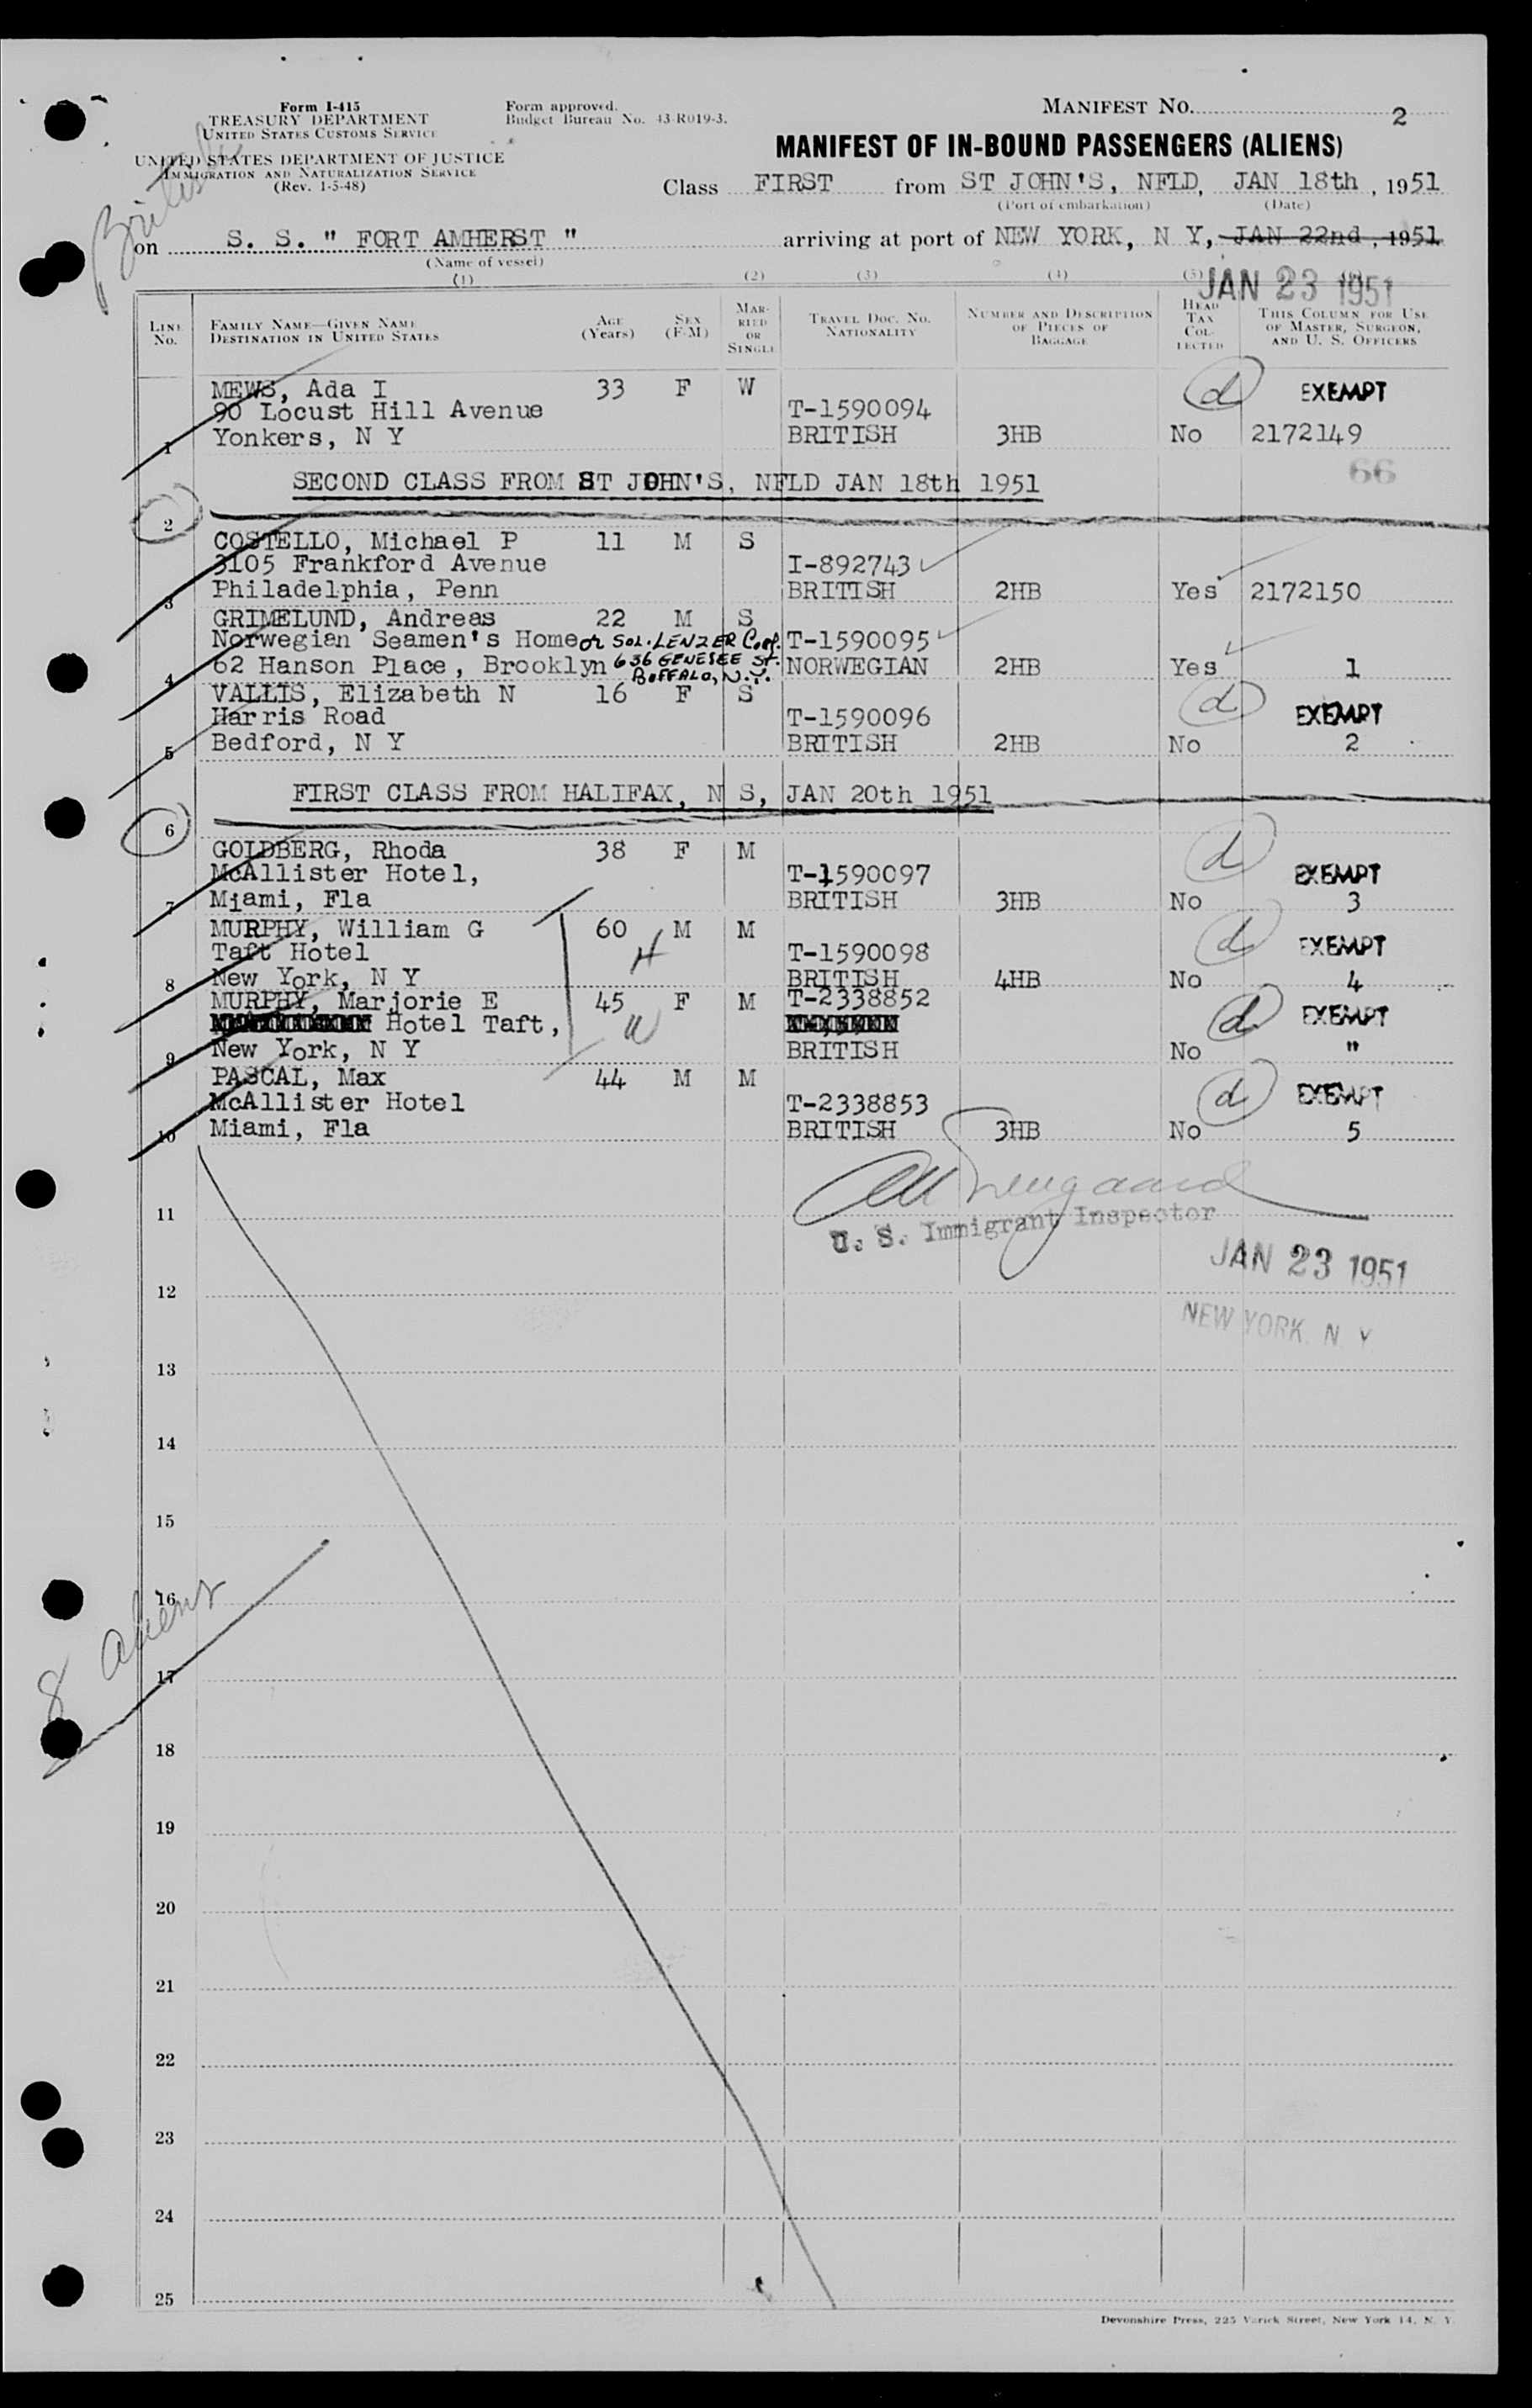 Form I-415
TREASURY DEPARTMENT
UNITED STATES CUSTOMS SERVICE
UNITED STATES DEPARTMENT OF JUSTICE
IMMIGRATION AND NATURALIZATION SERVICE
(Rev. 1-5-48)
Form approved.
Budget Bureau No. 43-R019-3.
MANIFEST NO. 2
MANIFEST OF IN-BOUND PASSENGERS (ALIENS)
Class FIRST from ST JOHN'S, NFLD, JAN 18th, 1951
(Port of embarkation) (Date)
British
on S. S. " FORT AMHERST " arriving at port of NEW YORK, N Y, JAN 22nd, 1951
(Name of vessel)
JAN 23 1951
(1) (2) (3) (4) (5)
LINE No. FAMILY NAME—GIVEN NAME DESTINATION IN UNITED STATES AGE (Years) SEX (F-M) MARRIED OR SINGLE TRAVEL DOC. NO. NATIONALITY NUMBER AND DESCRIPTION OF PIECES OF BAGGAGE HEAD TAX COLLECTED THIS COLUMN FOR USE OF MASTER, SURGEON, AND U. S. OFFICERS
MEWS, Ada I 33 F W d EXEMPT
90 Locust Hill Avenue T-1590094
1 Yonkers, N Y BRITISH 3HB No 2172149
66
SECOND CLASS FROM ST JOHN'S, NFLD JAN 18th 1951
2
COSTELLO, Michael P 11 M S
3105 Frankford Avenue I-892743
3 Philadelphia, Penn BRITISH 2HB Yes 2172150
GRIMELUND, Andreas 22 M S
Norwegian Seamen's Home or SOL. LENZER Corp. T-1590095
4 62 Hanson Place, Brooklyn 636 GENESEE St. NORWEGIAN 2HB Yes 1
BUFFALO, N.Y.
VALLIS, Elizabeth N 16 F S d
Harris Road T-1590096 EXEMPT
5 Bedford, N Y BRITISH 2HB No 2
FIRST CLASS FROM HALIFAX, N S, JAN 20th 1951
6
GOLDBERG, Rhoda 38 F M d
McAllister Hotel, T-1590097 EXEMPT
7 Miami, Fla BRITISH 3HB No 3
MURPHY, William G 60 M M d EXEMPT
Taft Hotel H T-1590098
8 New York, N Y BRITISH 4HB No 4
MURPHY, Marjorie E 45 F M T-2338852 d EXEMPT
Hotel Taft, W
9 New York, N Y BRITISH No "
PASCAL, Max 44 M M d EXEMPT
McAllister Hotel T-2338853
10 Miami, Fla BRITISH 3HB No 5
11
U. S. Immigrant Inspector
JAN 23 1951
12
NEW YORK, N Y
13
14
15
16
8 aliens
17
18
19
20
21
22
23
24
25
Devonshire Press, 225 Varick Street, New York 14, N. Y.